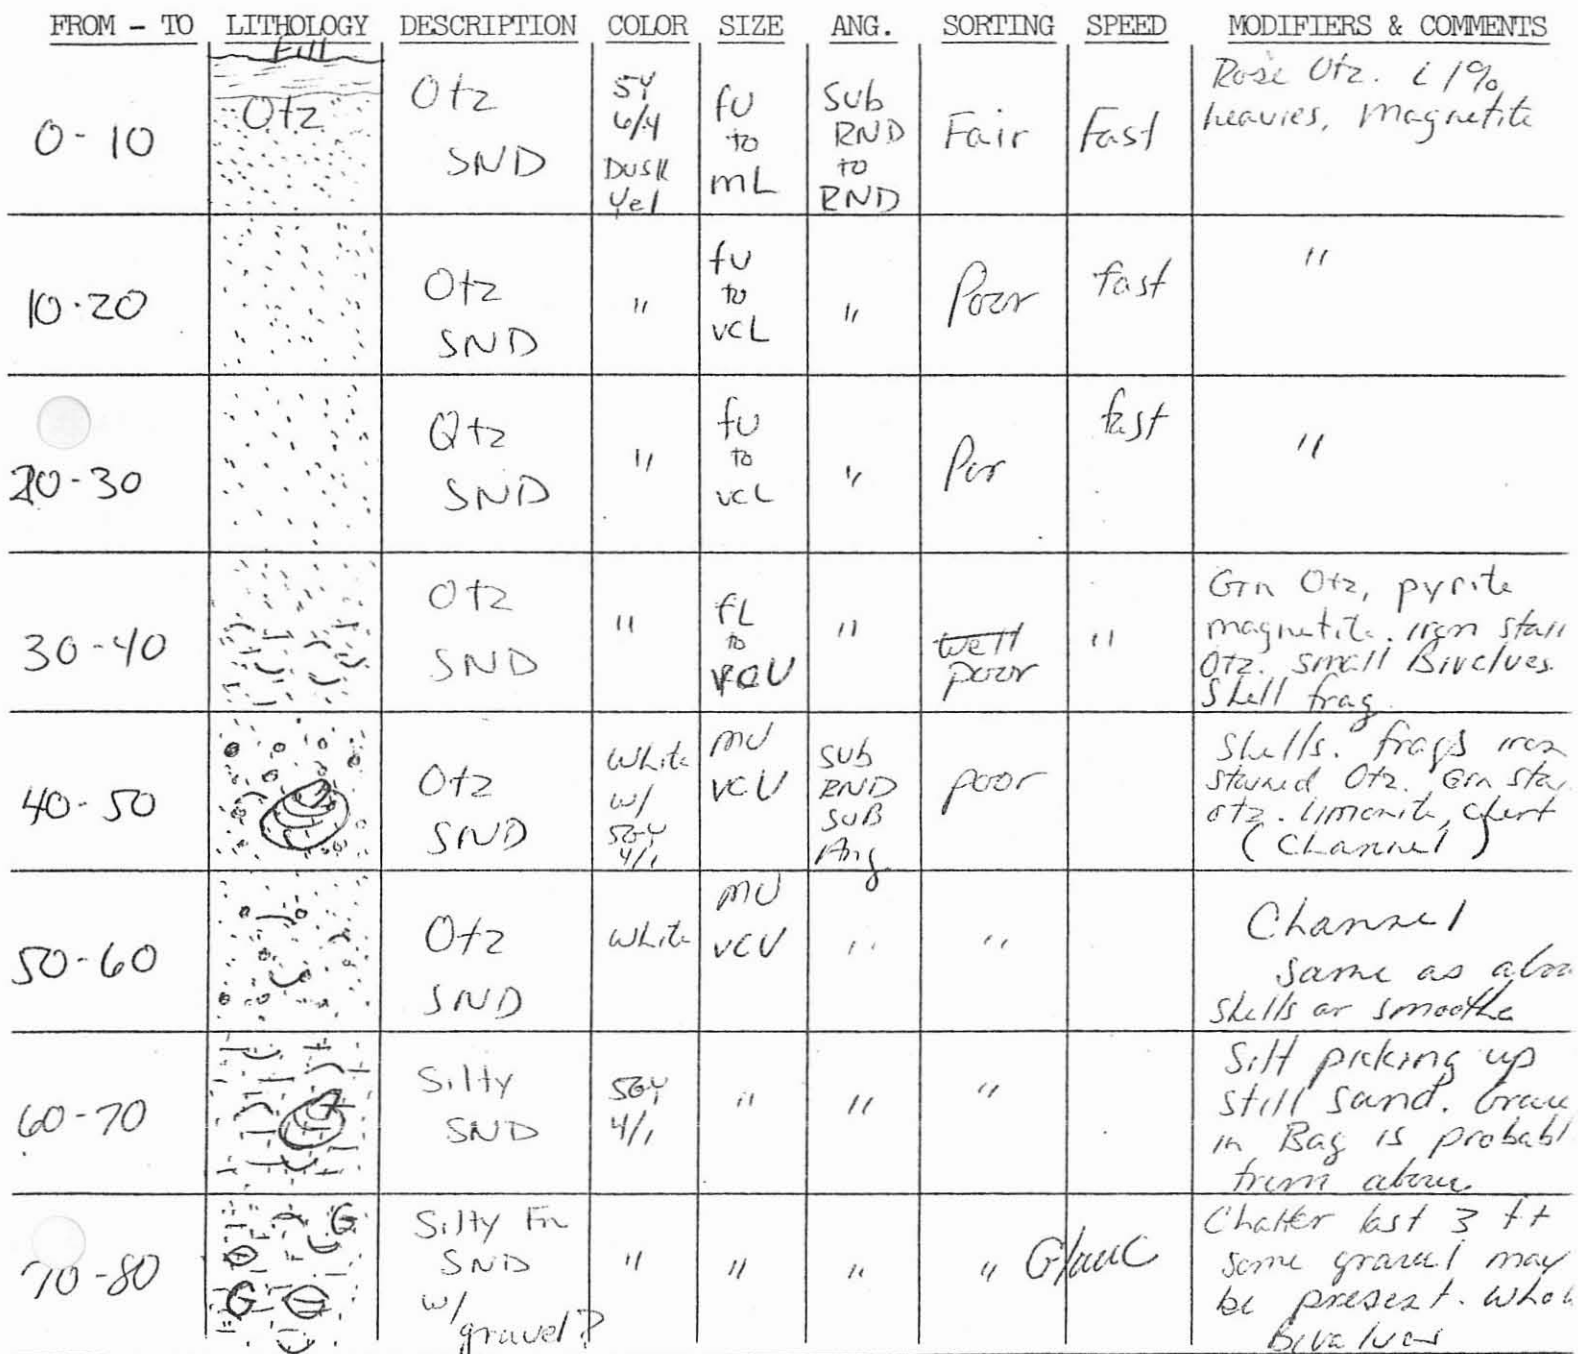 FROM - TO LITHOLOGY DESCRIPTION COLOR SIZE ANG. SORTING SPEED MODIFIERS & COMMENTS
Fill
0-10
Qtz
Qtz
SND
5Y
6/4
Dusk
Yel
fU
to
mL
Sub
RND
to
RND
Fair
Fast
Rose Qtz. < 1%
heavies, magnetite
10-20
Qtz
SND
"
fU
to
vcL
"
Poor
fast
"
20-30
Qtz
SND
"
fU
to
vcL
"
Por
fast
"
30-40
Qtz
SND
"
fL
to
VCU
"
Well
poor
"
Grn Qtz, pyrite
magnetite. iron stain
Qtz. small Bivalves
Shell frag.
40-50
Qtz
SND
White
w/
5GY
4/1
mU
vcU
Sub
RND
SUB
Ang.
poor
Shells. frags iron
stained Qtz. Grn sta
qtz. limonite, chert
(Channel)
50-60
Qtz
SND
White
mU
vcU
"
"
Channel
same as abov
shells ar smoothe
60-70
Silty
SND
5GY
4/1
"
"
"
Silt picking up
still sand. Grave
in Bag is probabl
from above.
70-80
G
G
Silty Fn
SND
w/
gravel?
"
"
"
" Glauc
Chatter last 3 ft
some gravel may
be present. Whol
Bivalves